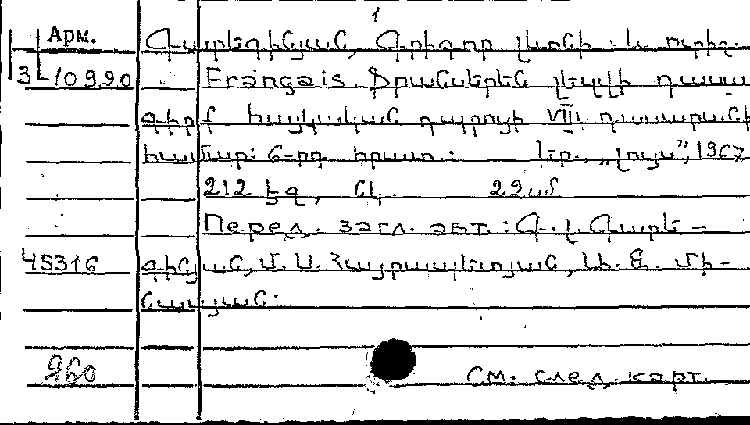 1
Арм. Գարեգինյան, Գրիգոր լևոնի և ուրիշ.
3-10990 Français. Ֆրանսերեն լեզվի դասա
գիրք հայկական դպրոցի VIII դասարանի
համար: 6-րդ հրատ.: Եր., „Լույս", 1967
212 էջ, նկ. 22սմ
Перед. загл. авт.: Գ. Լ. Գարե-
45316 գինյան, Մ. Ա. Հայրապետյան, Ա. Տ. Մի-
նասյան:
960 См. след. карт.